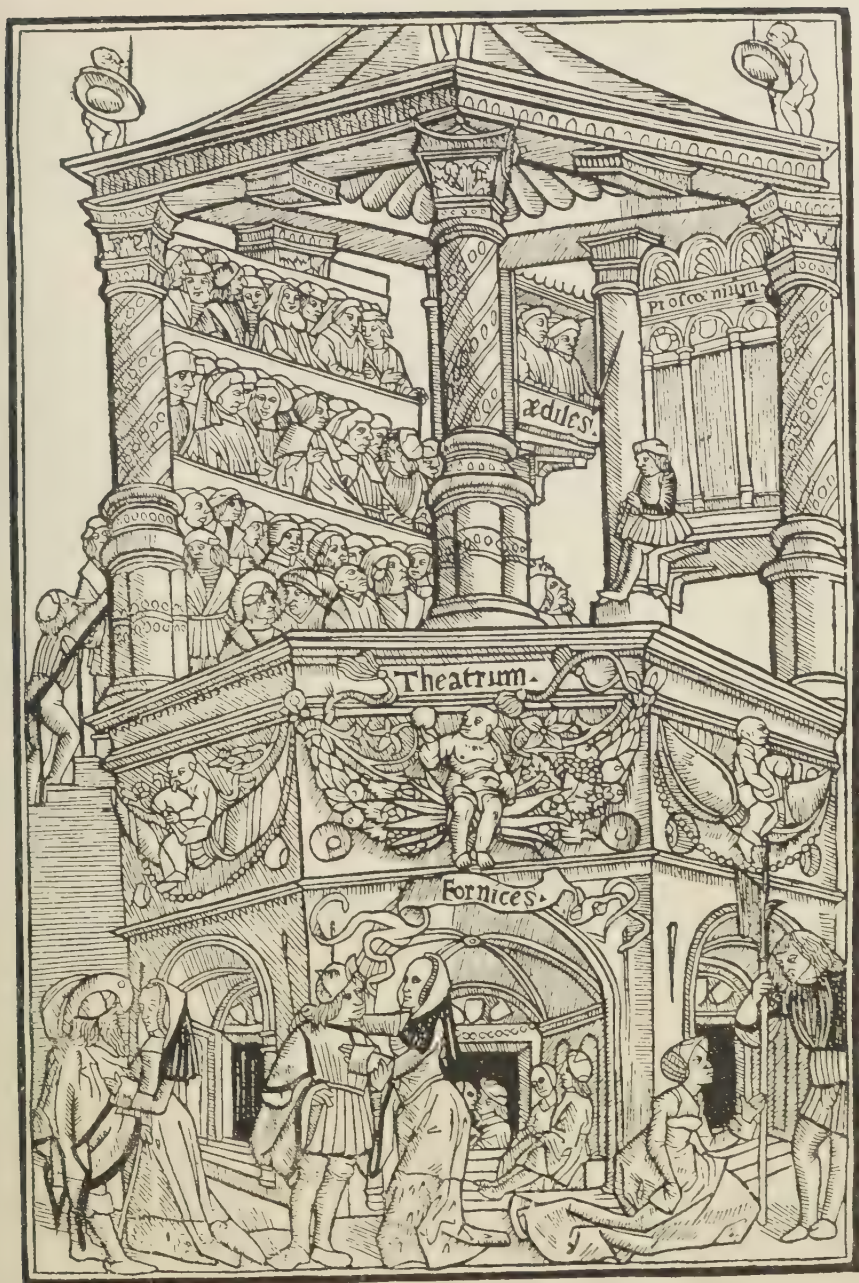 proscœnium
ædiles.
Theatrum.
Fornices.